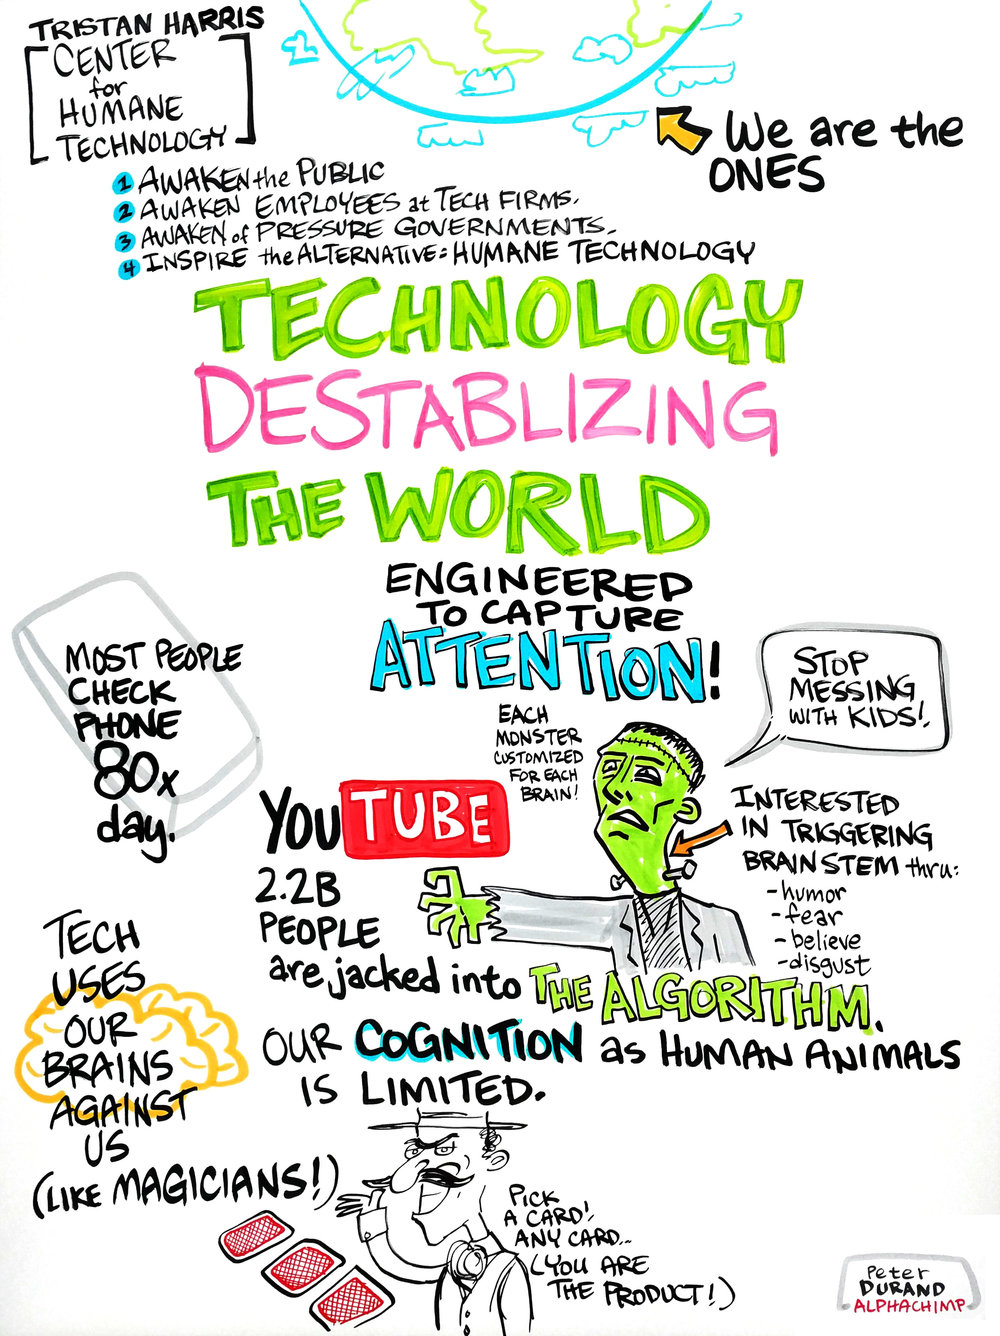 TRISTAN HARRIS
CENTER
for
HUMANE
TECHNOLOGY
We are the
ONES
1 AWAKEN the PUBLIC
2 AWAKEN EMPLOYEES at TECH FIRMS.
3 AWAKEN of PRESSURE GOVERNMENTS.
4 INSPIRE the ALTERNATIVE: HUMANE TECHNOLOGY
TECHNOLOGY
DESTABLIZING
THE WORLD
ENGINEERED
TO CAPTURE
ATTENTION!
MOST PEOPLE
CHECK
PHONE
80x
day.
EACH
MONSTER
CUSTOMIZED
FOR EACH
BRAIN!
STOP
MESSING
WITH KIDS!
YOUTUBE
2.2B
PEOPLE
are jacked into
THE ALGORITHM.
INTERESTED
IN TRIGGERING
BRAINSTEM thru:
-humor
-fear
-believe
-disgust
TECH
USES
OUR
BRAINS
AGAINST
US
(LIKE MAGICIANS!)
OUR COGNITION as HUMAN ANIMALS
IS LIMITED.
PICK
A CARD!
ANY CARD...
(YOU ARE
THE PRODUCT!)
Peter
DURAND
ALPHACHIMP